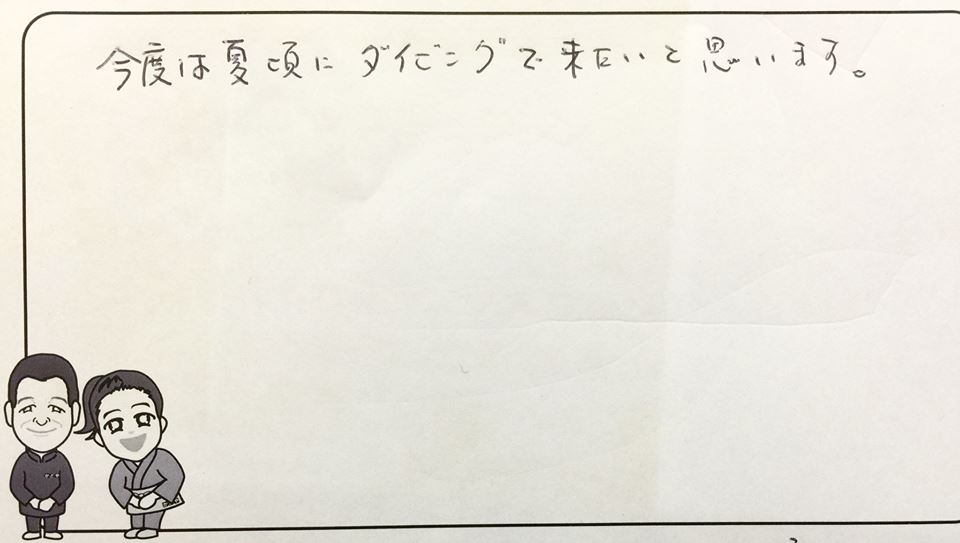 今度は夏頃に ダイビングで来たいと思います。